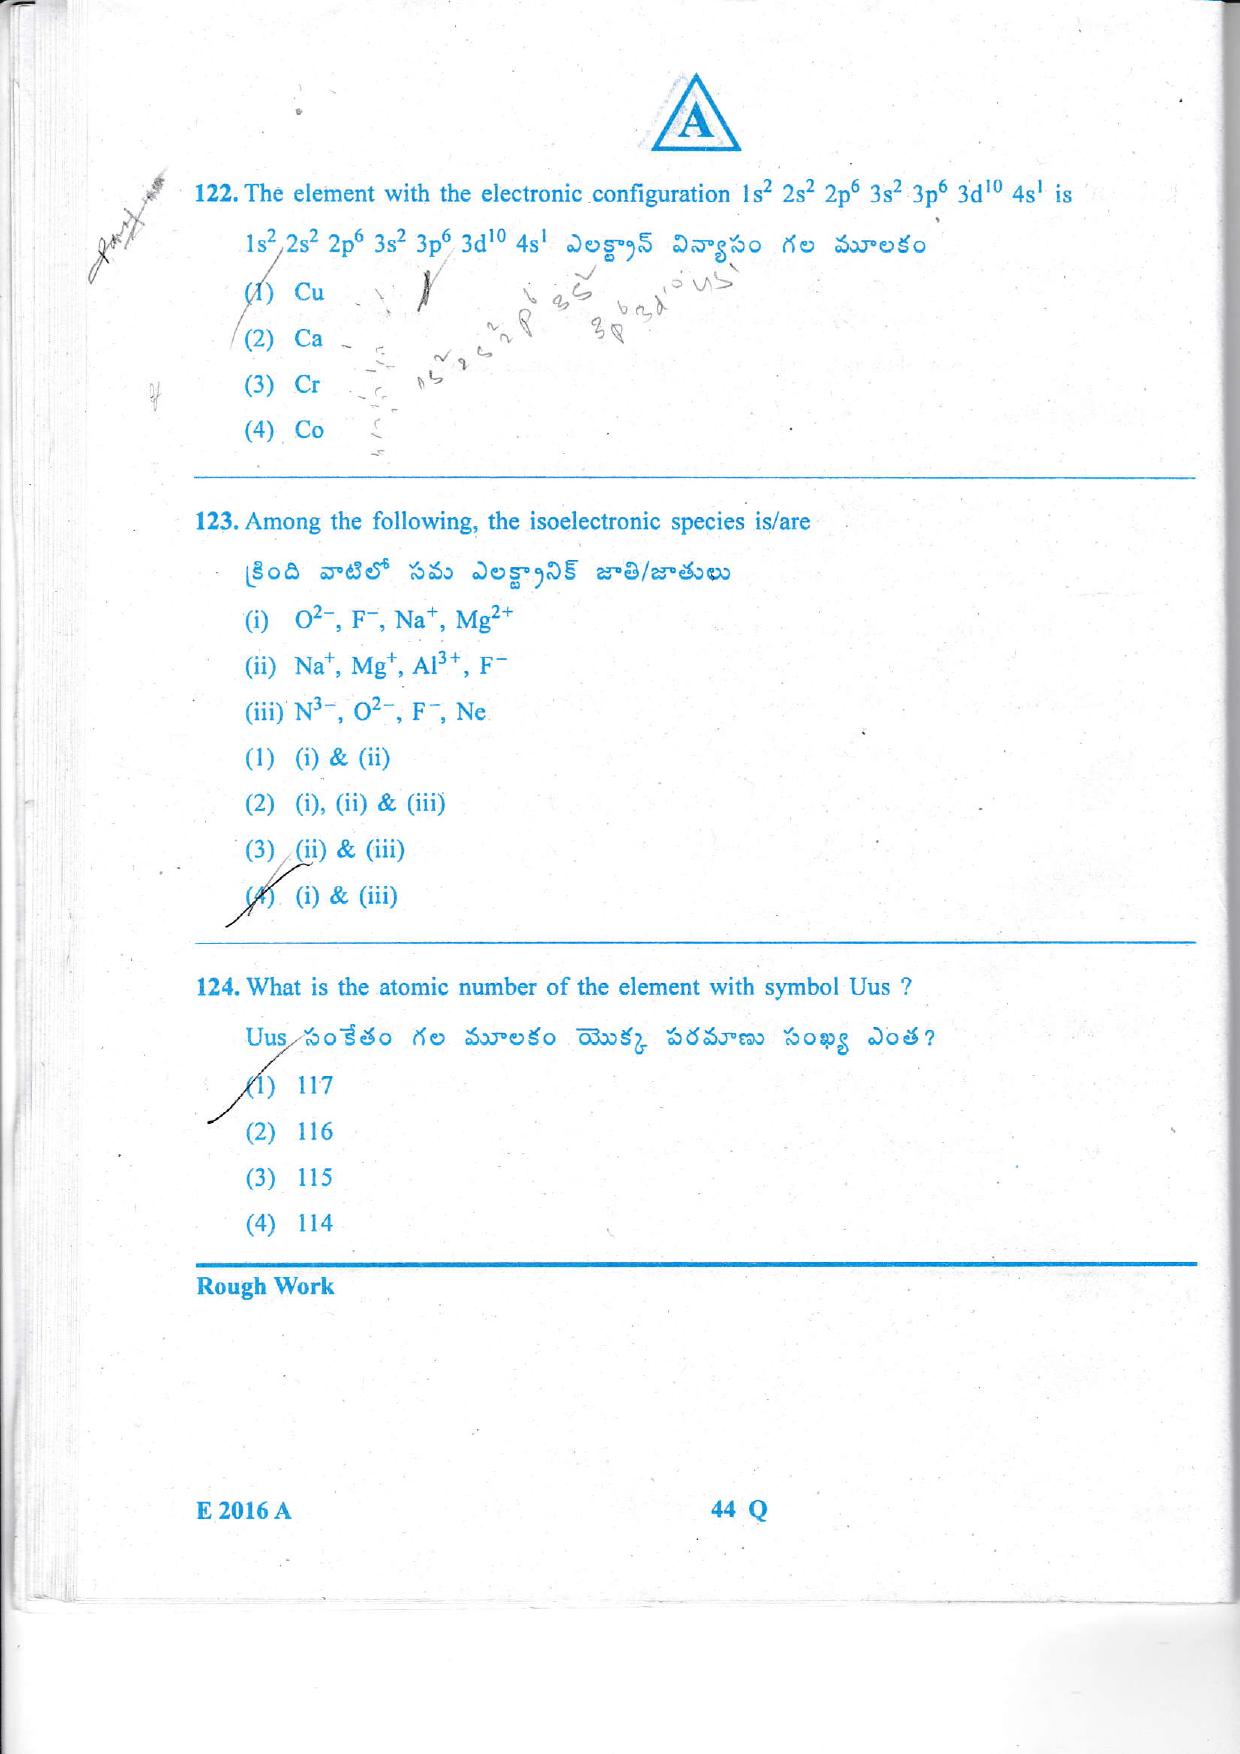 A
122. The element with the electronic configuration 1s² 2s² 2p⁶ 3s² 3p⁶ 3d¹⁰ 4s¹ is
1s² 2s² 2p⁶ 3s² 3p⁶ 3d¹⁰ 4s¹ ఎలక్ట్రాన్ విన్యాసం గల మూలకం
(1) Cu
(2) Ca
(3) Cr
(4) Co
1s² 2s² 2p⁶ 3s²
3p⁶ 3d¹⁰ 4s¹
123. Among the following, the isoelectronic species is/are
క్రింది వాటిలో సమ ఎలక్ట్రానిక్ జాతి/జాతులు
(i) O²⁻, F⁻, Na⁺, Mg²⁺
(ii) Na⁺, Mg⁺, Al³⁺, F⁻
(iii) N³⁻, O²⁻, F⁻, Ne
(1) (i) & (ii)
(2) (i), (ii) & (iii)
(3) (ii) & (iii)
(4) (i) & (iii)
124. What is the atomic number of the element with symbol Uus ?
Uus సంకేతం గల మూలకం యొక్క పరమాణు సంఖ్య ఎంత?
(1) 117
(2) 116
(3) 115
(4) 114
Rough Work
E 2016 A
44 Q